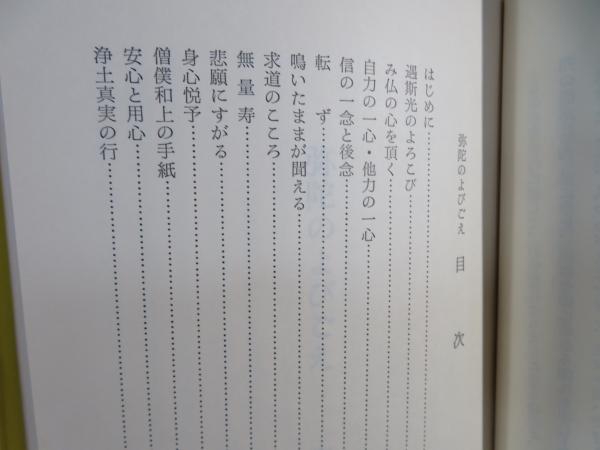 弥陀のよびごえ 目次
はじめに
遇斯光のよろこび
み仏の心を頂く
自力の一心・他力の一心
信の一念と後念
転ず
鳴いたままが聞える
求道のこころ
無量寿
悲願にすがる
身心悦予
僧僕和上の手紙
安心と用心
浄土真実の行